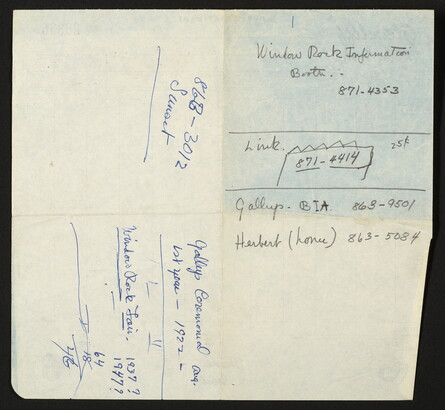 Window Rock Information
Booth..
871-4353
Link.
871-4414
25¢
Gallup - BIA. 863-9501
Herbert (home) 863-5084
868-3012
Sunset
Gallup Ceremonial Aug.
1st year - 1922 -
Window Rock Fair. 1937?
1947?
64
18